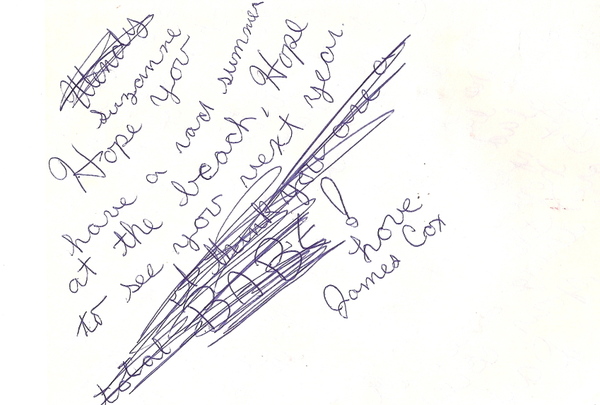 Wendy
suzanne
Hope you
have a rad summer
at the beach, Hope
to see you next year.
I think you are a
total BABE!
Love,
James Cox